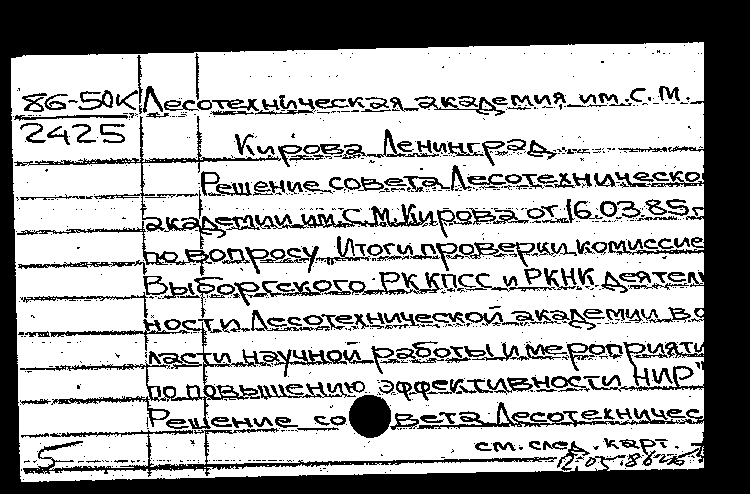 86-50К Лесотехническая академия им. С. М.
2425
Кирова Ленинград.
Решение совета Лесотехническо
академии им. С. М. Кирова от 16.03.85 г
по вопросу „Итоги проверки комиссие
Выборгского РК КПСС и РКНК деятель
ности Лесотехнической академии в о
ласти научной работы и мероприяти
по повышению эффективности НИР"
Решение совета Лесотехничес
см. след. карт.
5